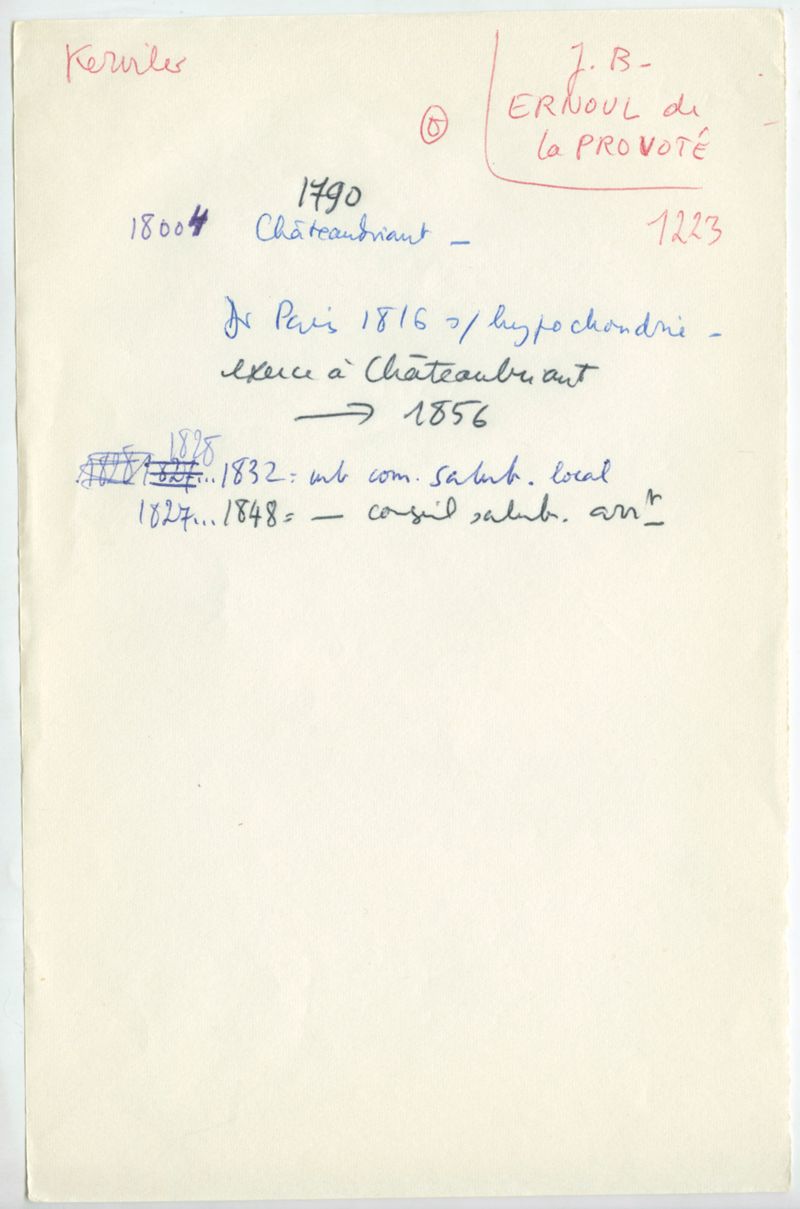 Kerviler
J. B -
ERNOUL de
la PROVOTÉ
1223
1790
18004 Châteaubriant -
Dr Paris 1816 s/ hypochondrie -
exerce à Châteaubriant
→ 1856
1828
1828 1827... 1832 = mb com. salub. local
1827... 1848 = — conseil salub. arrt